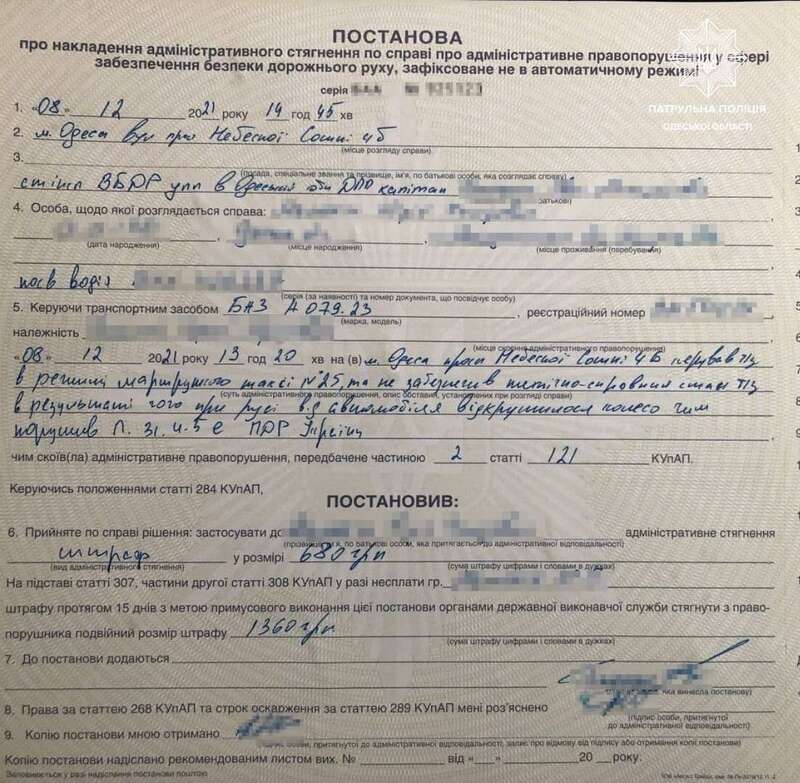 ПОСТАНОВА
про накладення адміністративного стягнення по справі про адміністративне правопорушення у сфері
забезпечення безпеки дорожнього руху, зафіксоване не в автоматичному режимі
ПАТРУЛЬНА ПОЛІЦІЯ
ОДЕСЬКОЇ ОБЛАСТІ
серія №
1. «08» 12 2021 року 14 год 45 хв
2. м. Одеса вул про Небесної Сотні 4Б
(місце розгляду справи)
3.
(посада, спеціальне звання та прізвище, ім'я, по батькові особи, яка розглядає справу)
ст інсп ВБДР упп в Одеській обл ДПП капітан
4. Особа, щодо якої розглядається справа:
(дата народження) (місце народження) (місце проживання (перебування)
посв водія
(серія (за наявності) та номер документа, що посвідчує особу)
5. Керуючи транспортним засобом БАЗ А 079.23, реєстраційний номер
(марка, модель)
належність
(місце скоєння адміністративного правопорушення)
«08» 12 2021 року 13 год 20 хв на (в) м. Одеса просп Небесної Сотні 4Б керував т/з
в режимі маршрутного таксі №25, та не забезпечив технічно-справний стан т/з
(суть адміністративного правопорушення, опис обставин, установлених при розгляді справи)
в результаті чого при русі від автомобіля відкрутилося колесо чим
порушив П. 31.4.5 е ПДР України
чим скоїв(ла) адміністративне правопорушення, передбачене частиною 2 статті 121 КУпАП.
Керуючись положеннями статті 284 КУпАП,
ПОСТАНОВИВ:
6. Прийняте по справі рішення: застосувати до адміністративне стягнення
(прізвище, ім'я, по батькові особи, яка притягається до адміністративної відповідальності)
штраф у розмірі 680 грн
(вид адміністративного стягнення) (сума штрафу цифрами і словами в дужках)
На підставі статті 307, частини другої статті 308 КУпАП у разі несплати гр.
штрафу протягом 15 днів з метою примусового виконання цієї постанови органами державної виконавчої служби стягнути з право-
порушника подвійний розмір штрафу 1360 грн
(сума штрафу цифрами і словами в дужках)
7. До постанови додаються
яка винесла постанову)
8. Права за статтею 268 КУпАП та строк оскарження за статтею 289 КУпАП мені роз'яснено
(підпис особи, притягнутої
до адміністративної відповідальності)
9. Копію постанови мною отримано
(підпис особи, притягнутої до адміністративної відповідальності, запис про відмову від підпису або отримання копії постанови)
Копію постанови надіслано рекомендованим листом вих. № від «» 20 року.
Заповнюється у разі надіслання постанови поштою